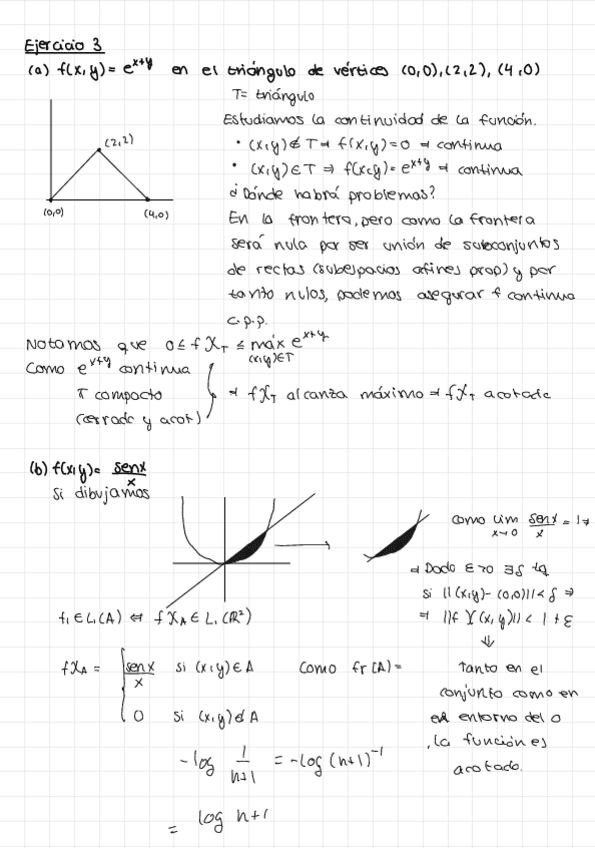 Ejercicio 3
(a) f(x,y)= e^{x+y} en el triángulo de vértices (0,0),(2,2),(4,0)
T= triángulo
Estudiamos la continuidad de la función.
(2,2)
• (x,y)∉T ⇒ f(x,y)=0 ⇒ continua
• (x,y)∈T ⇒ f(x,y)= e^{x+y} ⇒ continua
¿Dónde habrá problemas?
(0,0) (4,0)
En la frontera, pero como la frontera
será nula por ser unión de subconjuntos
de rectas (subespacios afines prop) y por
tanto nulos, podemos asegurar f continua
c.p.p.
Notamos que 0≤ f χ_T ≤ máx e^{x+y}
(x,y)∈T
Como e^{x+y} continua
T compacto
(cerrado y acot)
⇒ fχ_T alcanza máximo ⇒ fχ_T acotada
(b) f(x,y)= senx/x
Si dibujamos
Como lim senx/x = 1 ⇒
x→0
⇒ Dado ε>0 ∃δ tq
si ||(x,y)-(0,0)||<δ ⇒
⇒ ||f χ(x,y)|| < 1+ε
⇓
f ∈ L₁(A) ⇔ f χ_A ∈ L₁(ℝ²)
fχ_A = senx/x si (x,y)∈A
0 si (x,y)∉A
Como fr(A)=
Tanto en el
conjunto como en
el entorno del 0
, la función es
acotada.
-log 1/(n+1) = -log(n+1)^{-1}
= log n+1